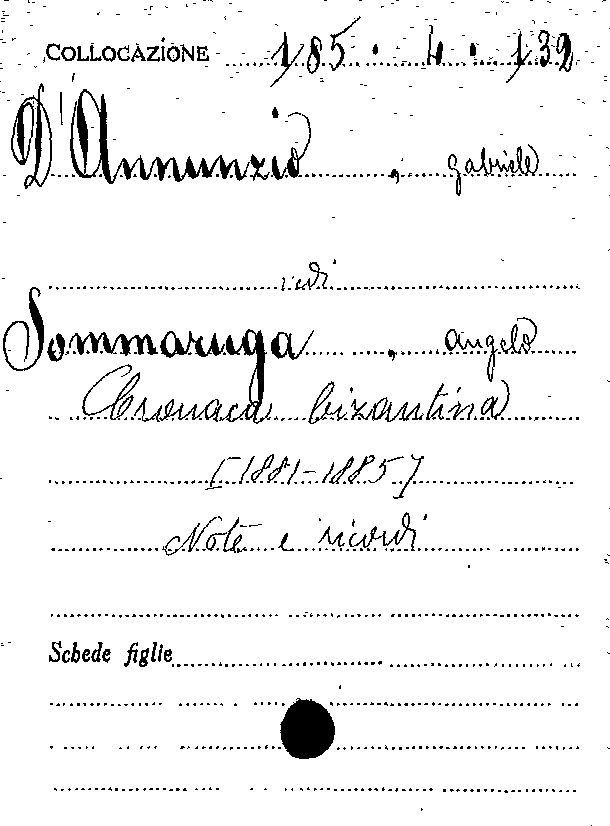 COLLOCAZIONE 185 . 4 . 132
D'Annunzio , Gabriele
vedi
Sommaruga , Angelo
Cronaca bizantina
[1881-1885]
Note e ricordi
Schede figlie